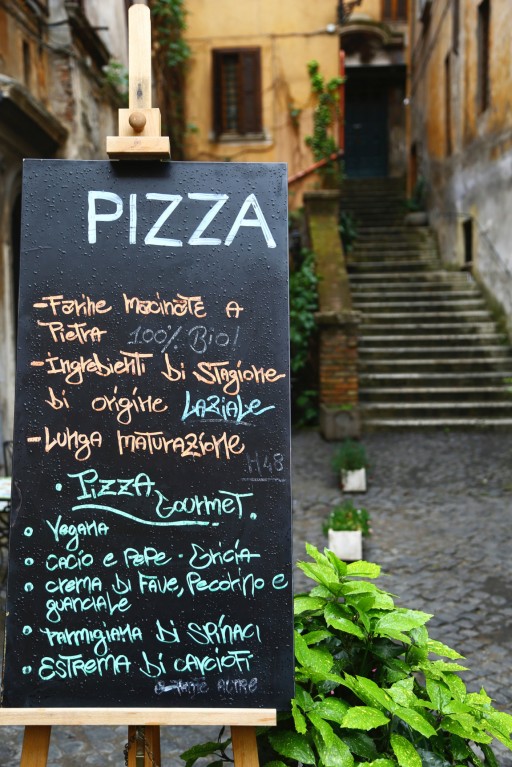 PIZZA
- Farine Macinate A
Pietra 100% Bio!
- Ingredienti di Stagione
di origine LAZIALE
- Lunga maturazione
H48
• PIZZA
Gourmet.
Vegana
cacio e pepe - Gricia
crema di Fave, Pecorino e
guanciale
Parmigiana di SPINACI
ESTREMA di CARCIOFI
altre